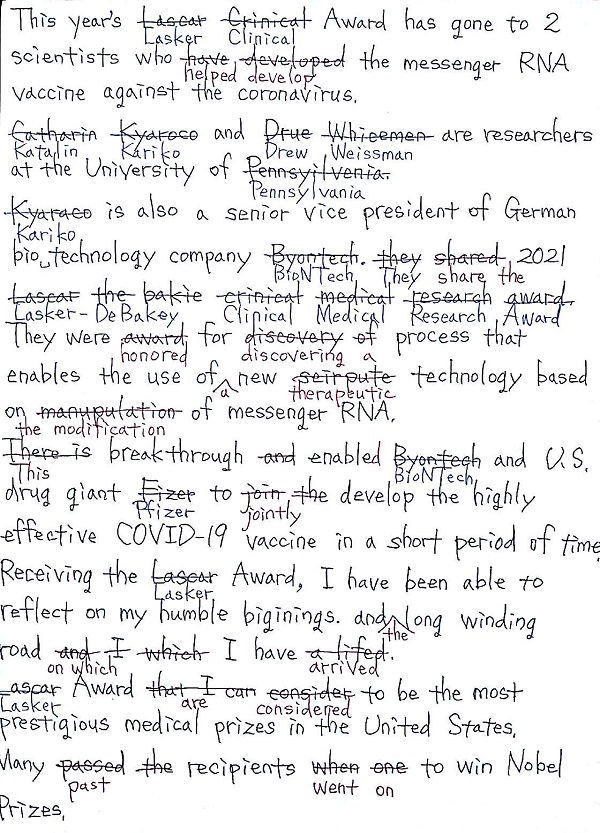 This year's Lascar Crinical Award has gone to 2
Lasker Clinical
scientists who have developed the messenger RNA
helped develop
vaccine against the coronavirus.
Catharin Kyaroco and Drue Whiceemen are researchers
Katalin Kariko Drew Weissman
at the University of Pennsyilvenia.
Pennsylvania
Kyaraco is also a senior vice president of German
Kariko
bio technology company Byontech. they shared 2021
BioNTech. They share the
Lascar the bakie crinical medical research award.
Lasker-DeBakey Clinical Medical Research Award
They were award for discovery of process that
honored discovering a
enables the use of new seirpute technology based
a therapeutic
on manupulation of messenger RNA.
the modification
There is breakthrough and enabled Byontech and U.S.
This BioNTech
drug giant Fizer to join the develop the highly
Pfizer jointly
effective COVID-19 vaccine in a short period of time
Receiving the Lascar Award, I have been able to
Lasker
reflect on my humble biginings. and long winding
the
road and I which I have a lifed.
on which arrived
Lascar Award that I can consider to be the most
Lasker are considered
prestigious medical prizes in the United States.
Many passed the recipients when one to win Nobel
past went on
Prizes.